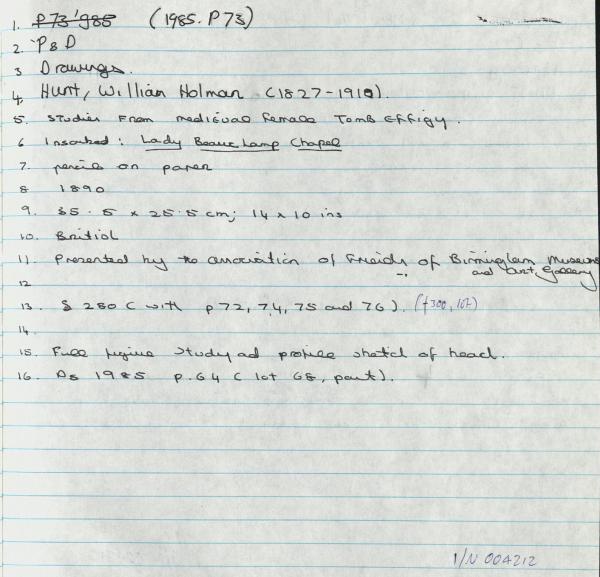 1. P73'985 (1985.P73)
2. P&D
3 Drawings.
4. Hunt, William Holman (1827-1910).
5. Studies from medieval female Tomb Effigy.
6 Inscribed: Lady Beauchamp Chapel
7. pencil on paper
8 1890
9. 35.5 x 25.5 cm; 14 x 10 ins
10. British
11. Presented by the association of Friends of Birmingham Museums and Art Gallery
12
13. § 280 C with p72, 74, 75 and 76). (£300, lot)
14.
15. Full figure study ad profile sketch of head.
16. As 1985 p.64 (lot 68, part).
I/N 004212